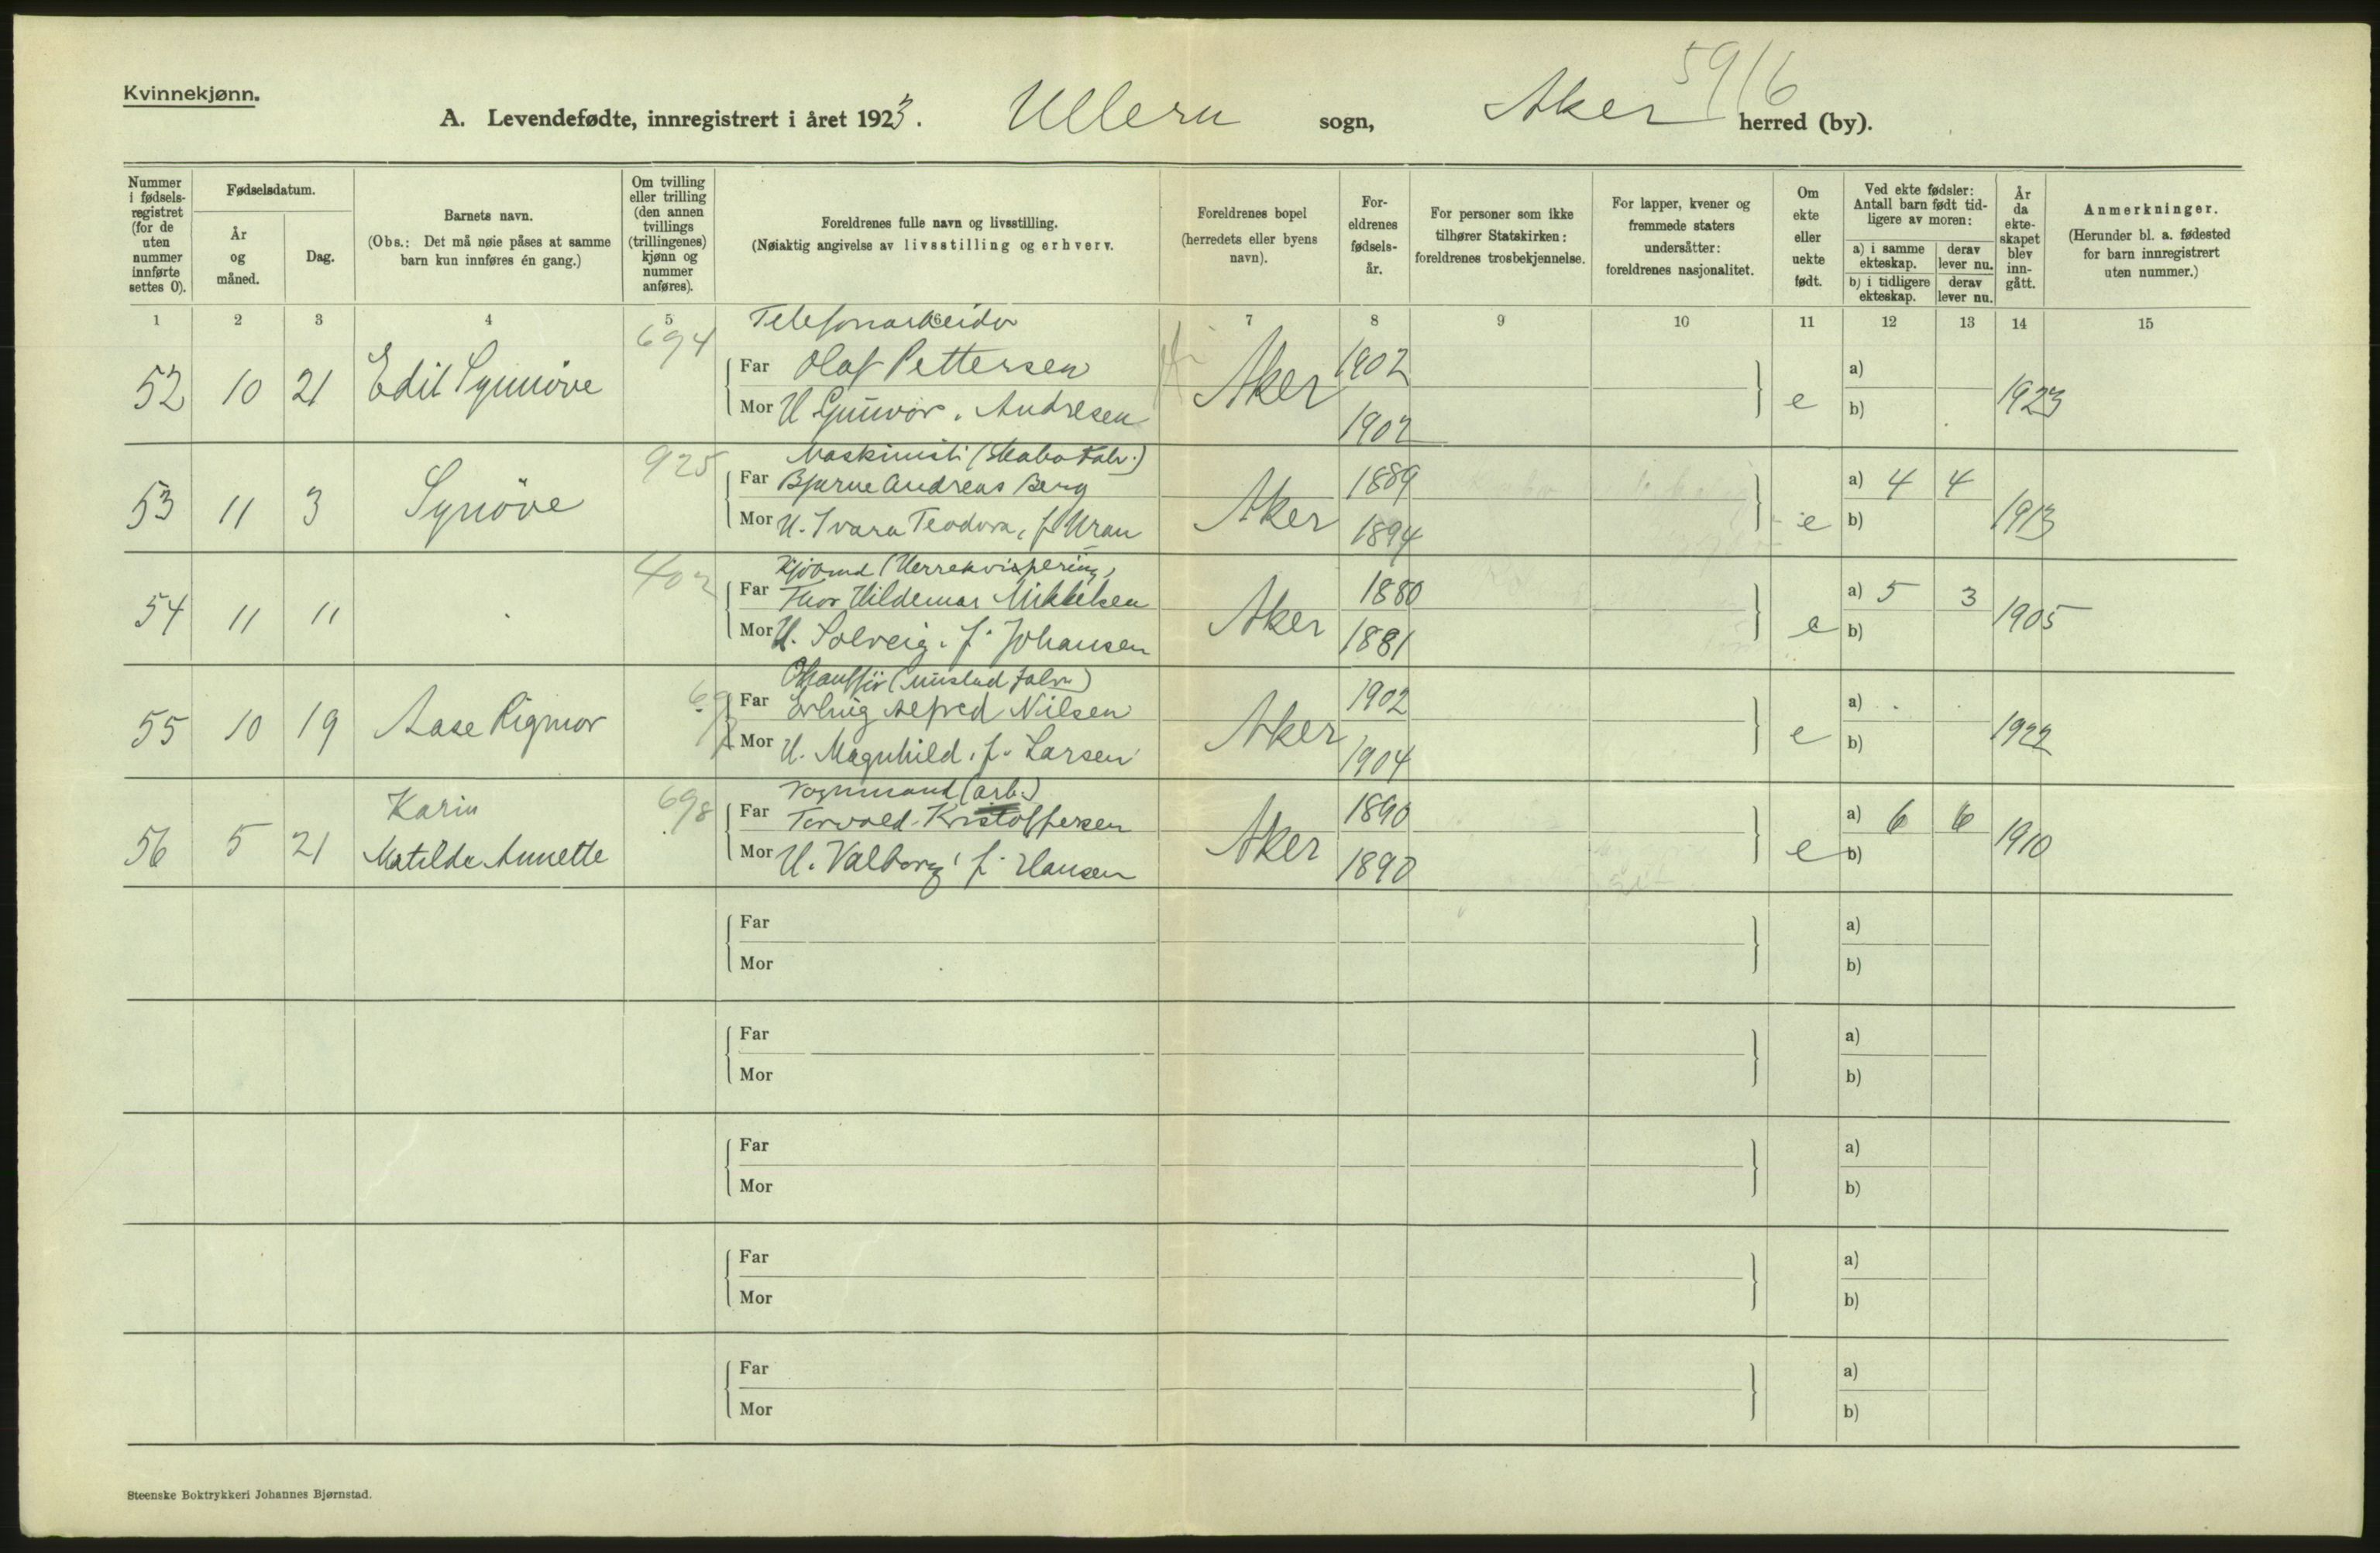 Kvinnekjønn.
5916
A. Levendefødte, innregistrert i året 1923. Ullern sogn, Aker herred (by).
Nummer i fødsels-registret (for de uten nummer innførte settes 0).
Fødselsdatum.
År og måned.
Dag.
Barnets navn.
(Obs.: Det må nøie påses at samme barn kun innføres én gang.)
Om tvilling eller trilling (den annen tvillings (trillingenes) kjønn og nummer anføres).
Foreldrenes fulle navn og livsstilling.
(Nøiaktig angivelse av livsstilling og erhverv.
Foreldrenes bopel (herredets eller byens navn).
For-eldrenes fødsels-år.
For personer som ikke tilhører Statskirken: foreldrenes trosbekjennelse.
For lapper, kvener og fremmede staters undersåtter: foreldrenes nasjonalitet.
Om ekte eller uekte født.
Ved ekte fødsler: Antall barn født tid-ligere av moren:
a) i samme ekteskap.
derav lever nu.
b) i tidligere ekteskap.
derav lever nu.
År da ekte-skapet blev inn-gått.
Anmerkninger.
(Herunder bl. a. fødested for barn innregistrert uten nummer.)
1 2 3 4 5 6 7 8 9 10 11 12 13 14 15
694 Telefonarbeider
52 10 21 Edit Synnöve Far Olaf Pettersen Aker 1902 e a) 1923
Mor H Gunvor. Andresen 1902 b)
925 Maskinist (Skabo Fabr.)
53 11 3 Synöve Far Bjarne Andreas Berg Aker 1889 e a) 4 4 1913
Mor H. Ivara Teodora, f. Uran 1894 b)
402
54 11 11 Far Thor Hildemar Mikkelsen Aker 1880 e a) 5 3 1905
Mor H. Solveig. f. Johansen 1881 b)
69 Chauffür (Mustad Fabr)
55 10 19 Aase Rigmor Far Erling Alfred Nilsen Aker 1902 e a) 1922
Mor H. Magnhild. f. Larsen 1904 b)
698 Vognmand (arb.)
56 5 21 Karin Matilde Annette Far Torvald Kristoffersen Aker 1890 e a) 6 6 1910
Mor H. Valborg f. Hansen 1890 b)
Far a)
Mor b)
Far a)
Mor b)
Far a)
Mor b)
Far a)
Mor b)
Far a)
Mor b)
Steenske Boktrykkeri Johannes Bjørnstad.